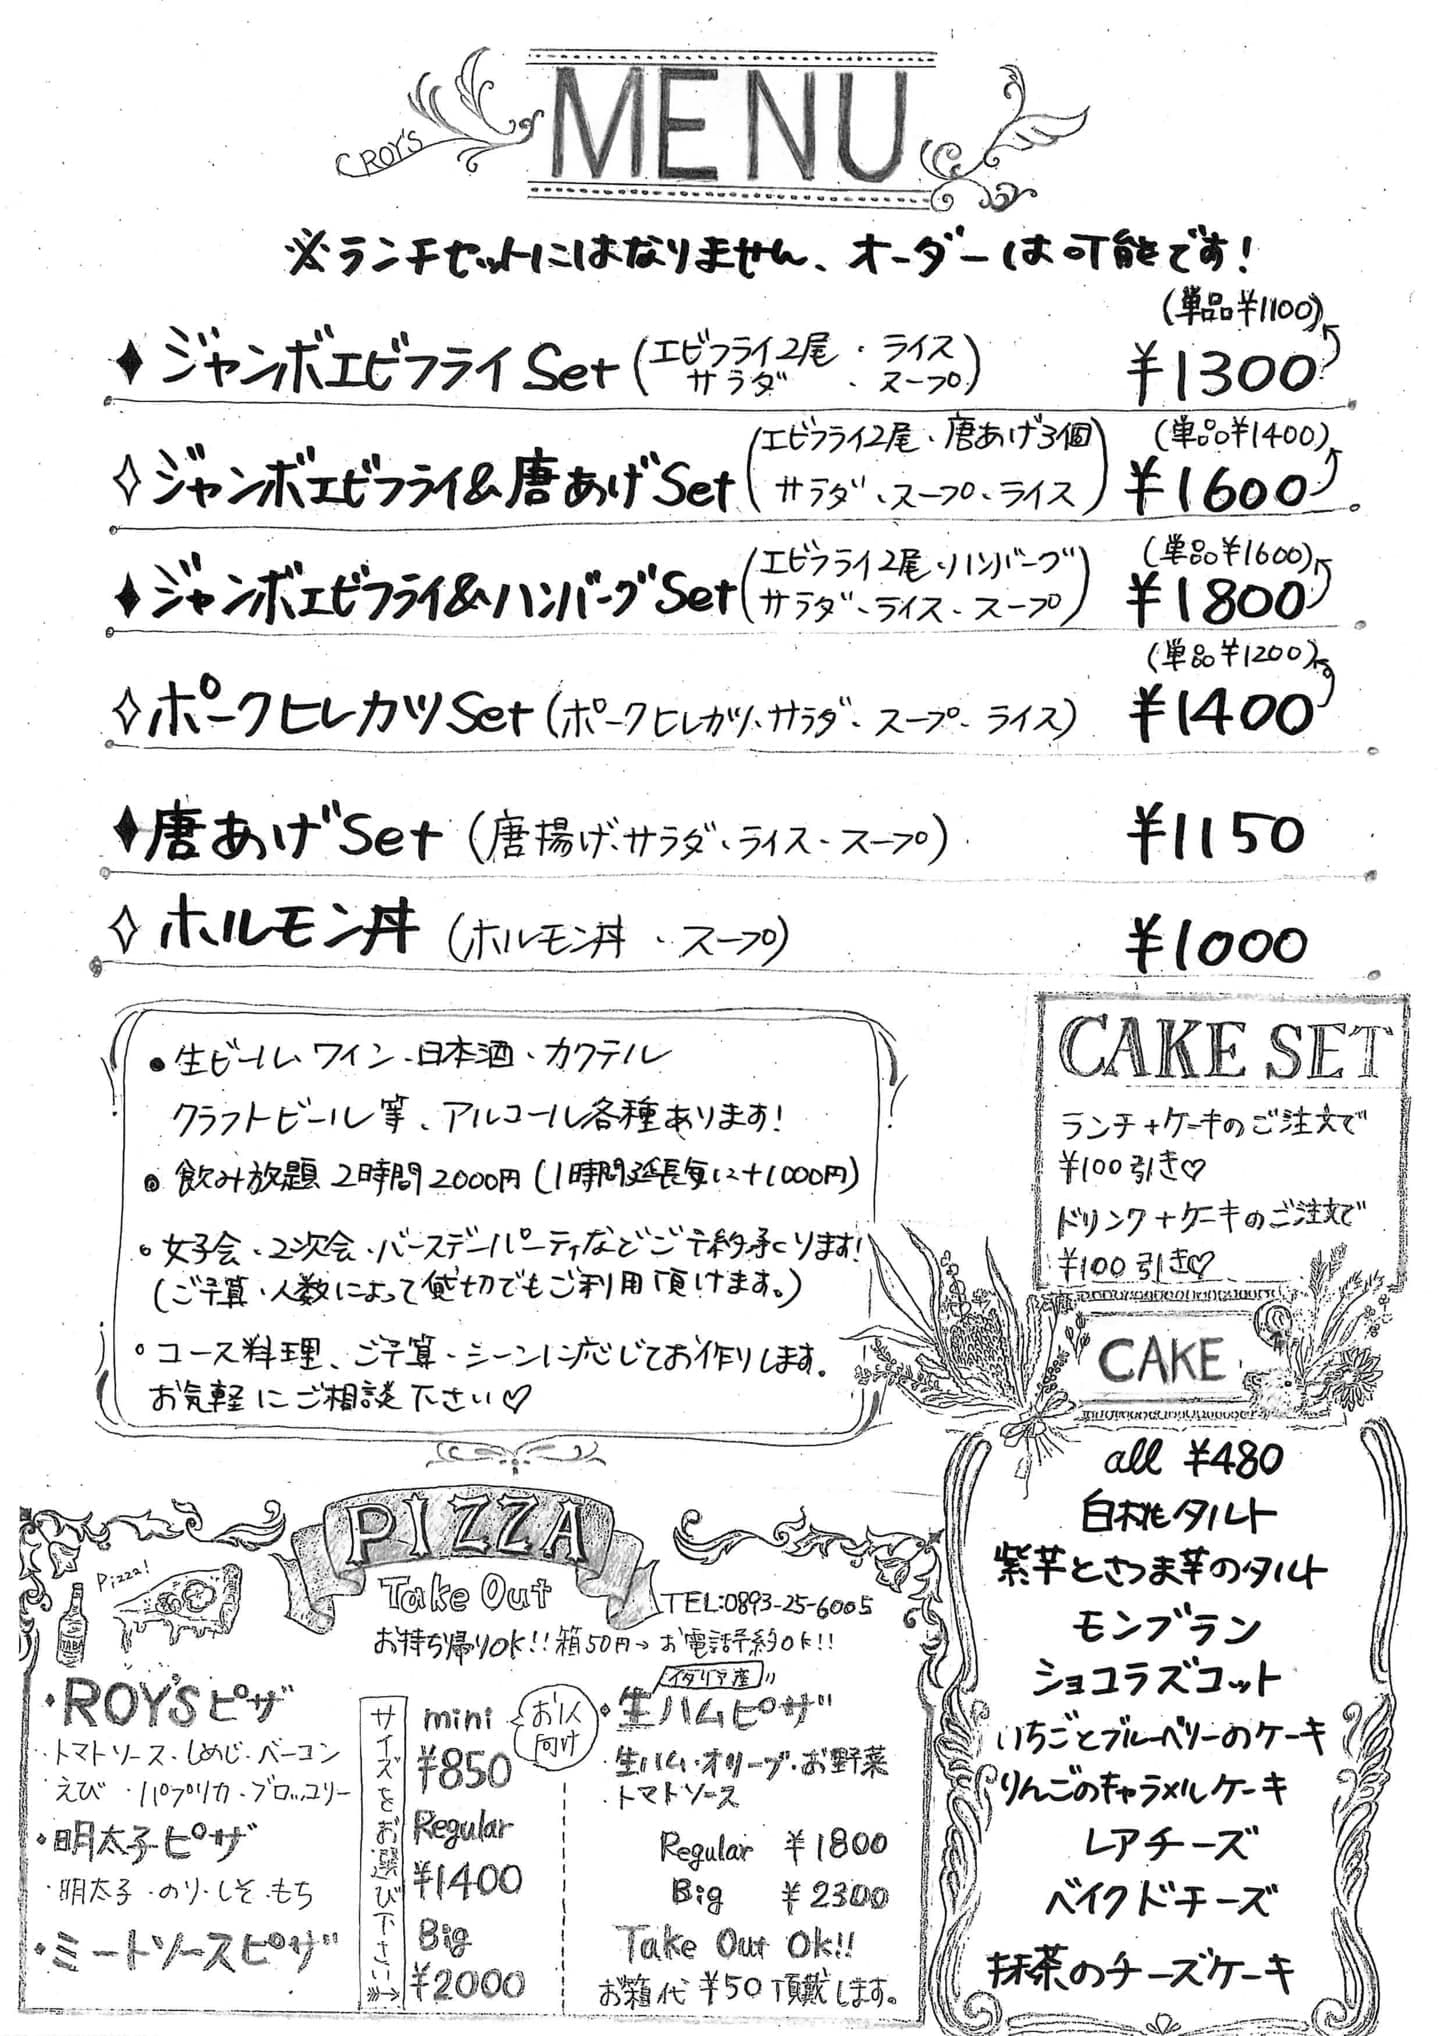 ROY'S
MENU
※ランチセットにはなりません、オーダーは可能です!
(単品¥1100)
◆ジャンボエビフライSet(エビフライ2尾・ライス ¥1300
サラダ・スープ)
(単品¥1400)
◇ジャンボエビフライ&唐あげSet(エビフライ2尾、唐あげ3個 ¥1600
サラダ、スープ、ライス)
(単品¥1600)
◆ジャンボエビフライ&ハンバーグSet(エビフライ2尾・ハンバーグ ¥1800
サラダ・ライス・スープ)
(単品¥1200)
◇ポークヒレカツSet(ポークヒレカツ、サラダ、スープ、ライス) ¥1400
◆唐あげSet(唐揚げ、サラダ、ライス、スープ) ¥1150
◇ホルモン丼(ホルモン丼、スープ) ¥1000
●生ビール、ワイン、日本酒、カクテル
クラフトビール等、アルコール各種あります!
●飲み放題 2時間2000円(1時間延長毎に+1000円)
○女子会・2次会・バースデーパーティなどご予約承ります!
(ご予算・人数によって貸切でもご利用頂けます。)
○コース料理、ご予算・シーンに応じてお作りします。
お気軽にご相談下さい♡
CAKE SET
ランチ+ケーキのご注文で
¥100引き♡
ドリンク+ケーキのご注文で
¥100引き♡
CAKE
all ¥480
白桃タルト
紫芋とさつま芋のタルト
モンブラン
ショコラズコット
いちごとブルーベリーのケーキ
りんごのキャラメルケーキ
レアチーズ
ベイクドチーズ
抹茶のチーズケーキ
PIZZA
Pizza!
TABA
Take Out
TEL:0893-25-6005
お持ち帰りOK!!箱50円→お電話予約OK!!
・ROY'Sピザ
・トマトソース・しめじ・ベーコン
えび・パプリカ・ブロッコリー
・明太子ピザ
・明太子・のり・しそ・もち
・ミートソースピザ
サイズをお選び下さい→
mini
お1人
向け
¥850
Regular
¥1400
Big
¥2000
イタリア産
・生ハムピザ
・生ハム・オリーブ・お野菜
・トマトソース
Regular ¥1800
Big ¥2300
Take Out Ok!!
お箱代¥50頂戴します。